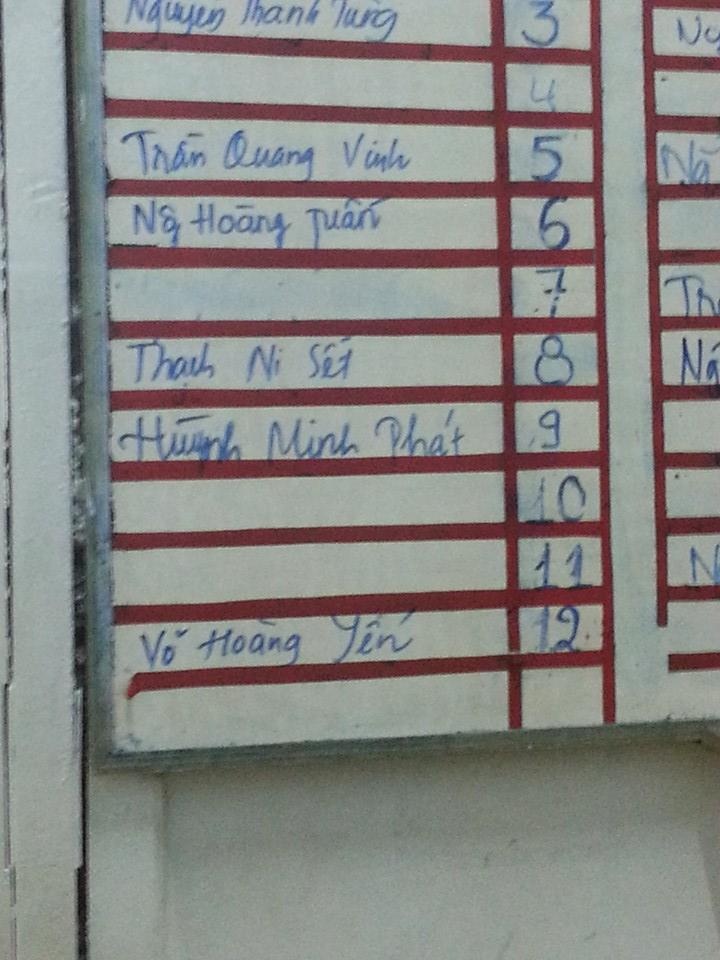 Nguyễn Thanh Tùng 3
4
Trần Quang Vinh 5
Ng Hoàng Tuấn 6
7
Thạch Ni Sét 8
Huỳnh Minh Phát 9
10
11
Võ Hoàng Yến 12